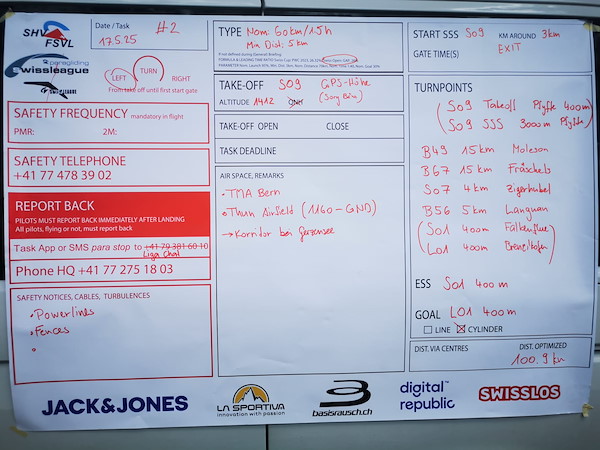 SHV
FSVL
Date / Task #2
17.5.25
paragliding
swissleague
LEFT TURN RIGHT
From take off until first start gate
SAFETY FREQUENCY mandatory in flight
PMR: 2M:
SAFETY TELEPHONE
+41 77 478 39 02
REPORT BACK
PILOTS MUST REPORT BACK IMMEDIATELY AFTER LANDING
All pilots, flying or not, must report back
Task App or SMS para stop to +41 79 381 60 10
Liga Chat
Phone HQ +41 77 275 18 03
SAFETY NOTICES, CABLES, TURBULENCES
• Powerlines
• Fences
•
TYPE Nom: 60km / 1.5h
Min Dist: 5km
TAKE-OFF S09 GPS-Höhe
ALTITUDE 1412 QNH
TAKE-OFF OPEN CLOSE
TASK DEADLINE
AIR SPACE, REMARKS
• TMA Bern
• Thun Airfield (1160 - GND)
→ Korridor bei Gerzensee
START SSS S09 KM AROUND 3km
GATE TIME(S) EXIT
TURNPOINTS
S09 Takeoff Pfyffe 400m
S09 SSS 3000m Pfyffe
B49 15km Moleson
B67 15km Fräschels
S07 4km Zigerhubel
B56 5km Langnau
S01 400m Falkenflue
L01 400m Brenzikofen
ESS S01 400m
GOAL L01 400m
LINE CYLINDER
DIST. VIA CENTRES DIST. OPTIMIZED
100.9 km
JACK&JONES
LA SPORTIVA
innovation with passion
basisrausch.ch
digital
republic
SWISSLOS